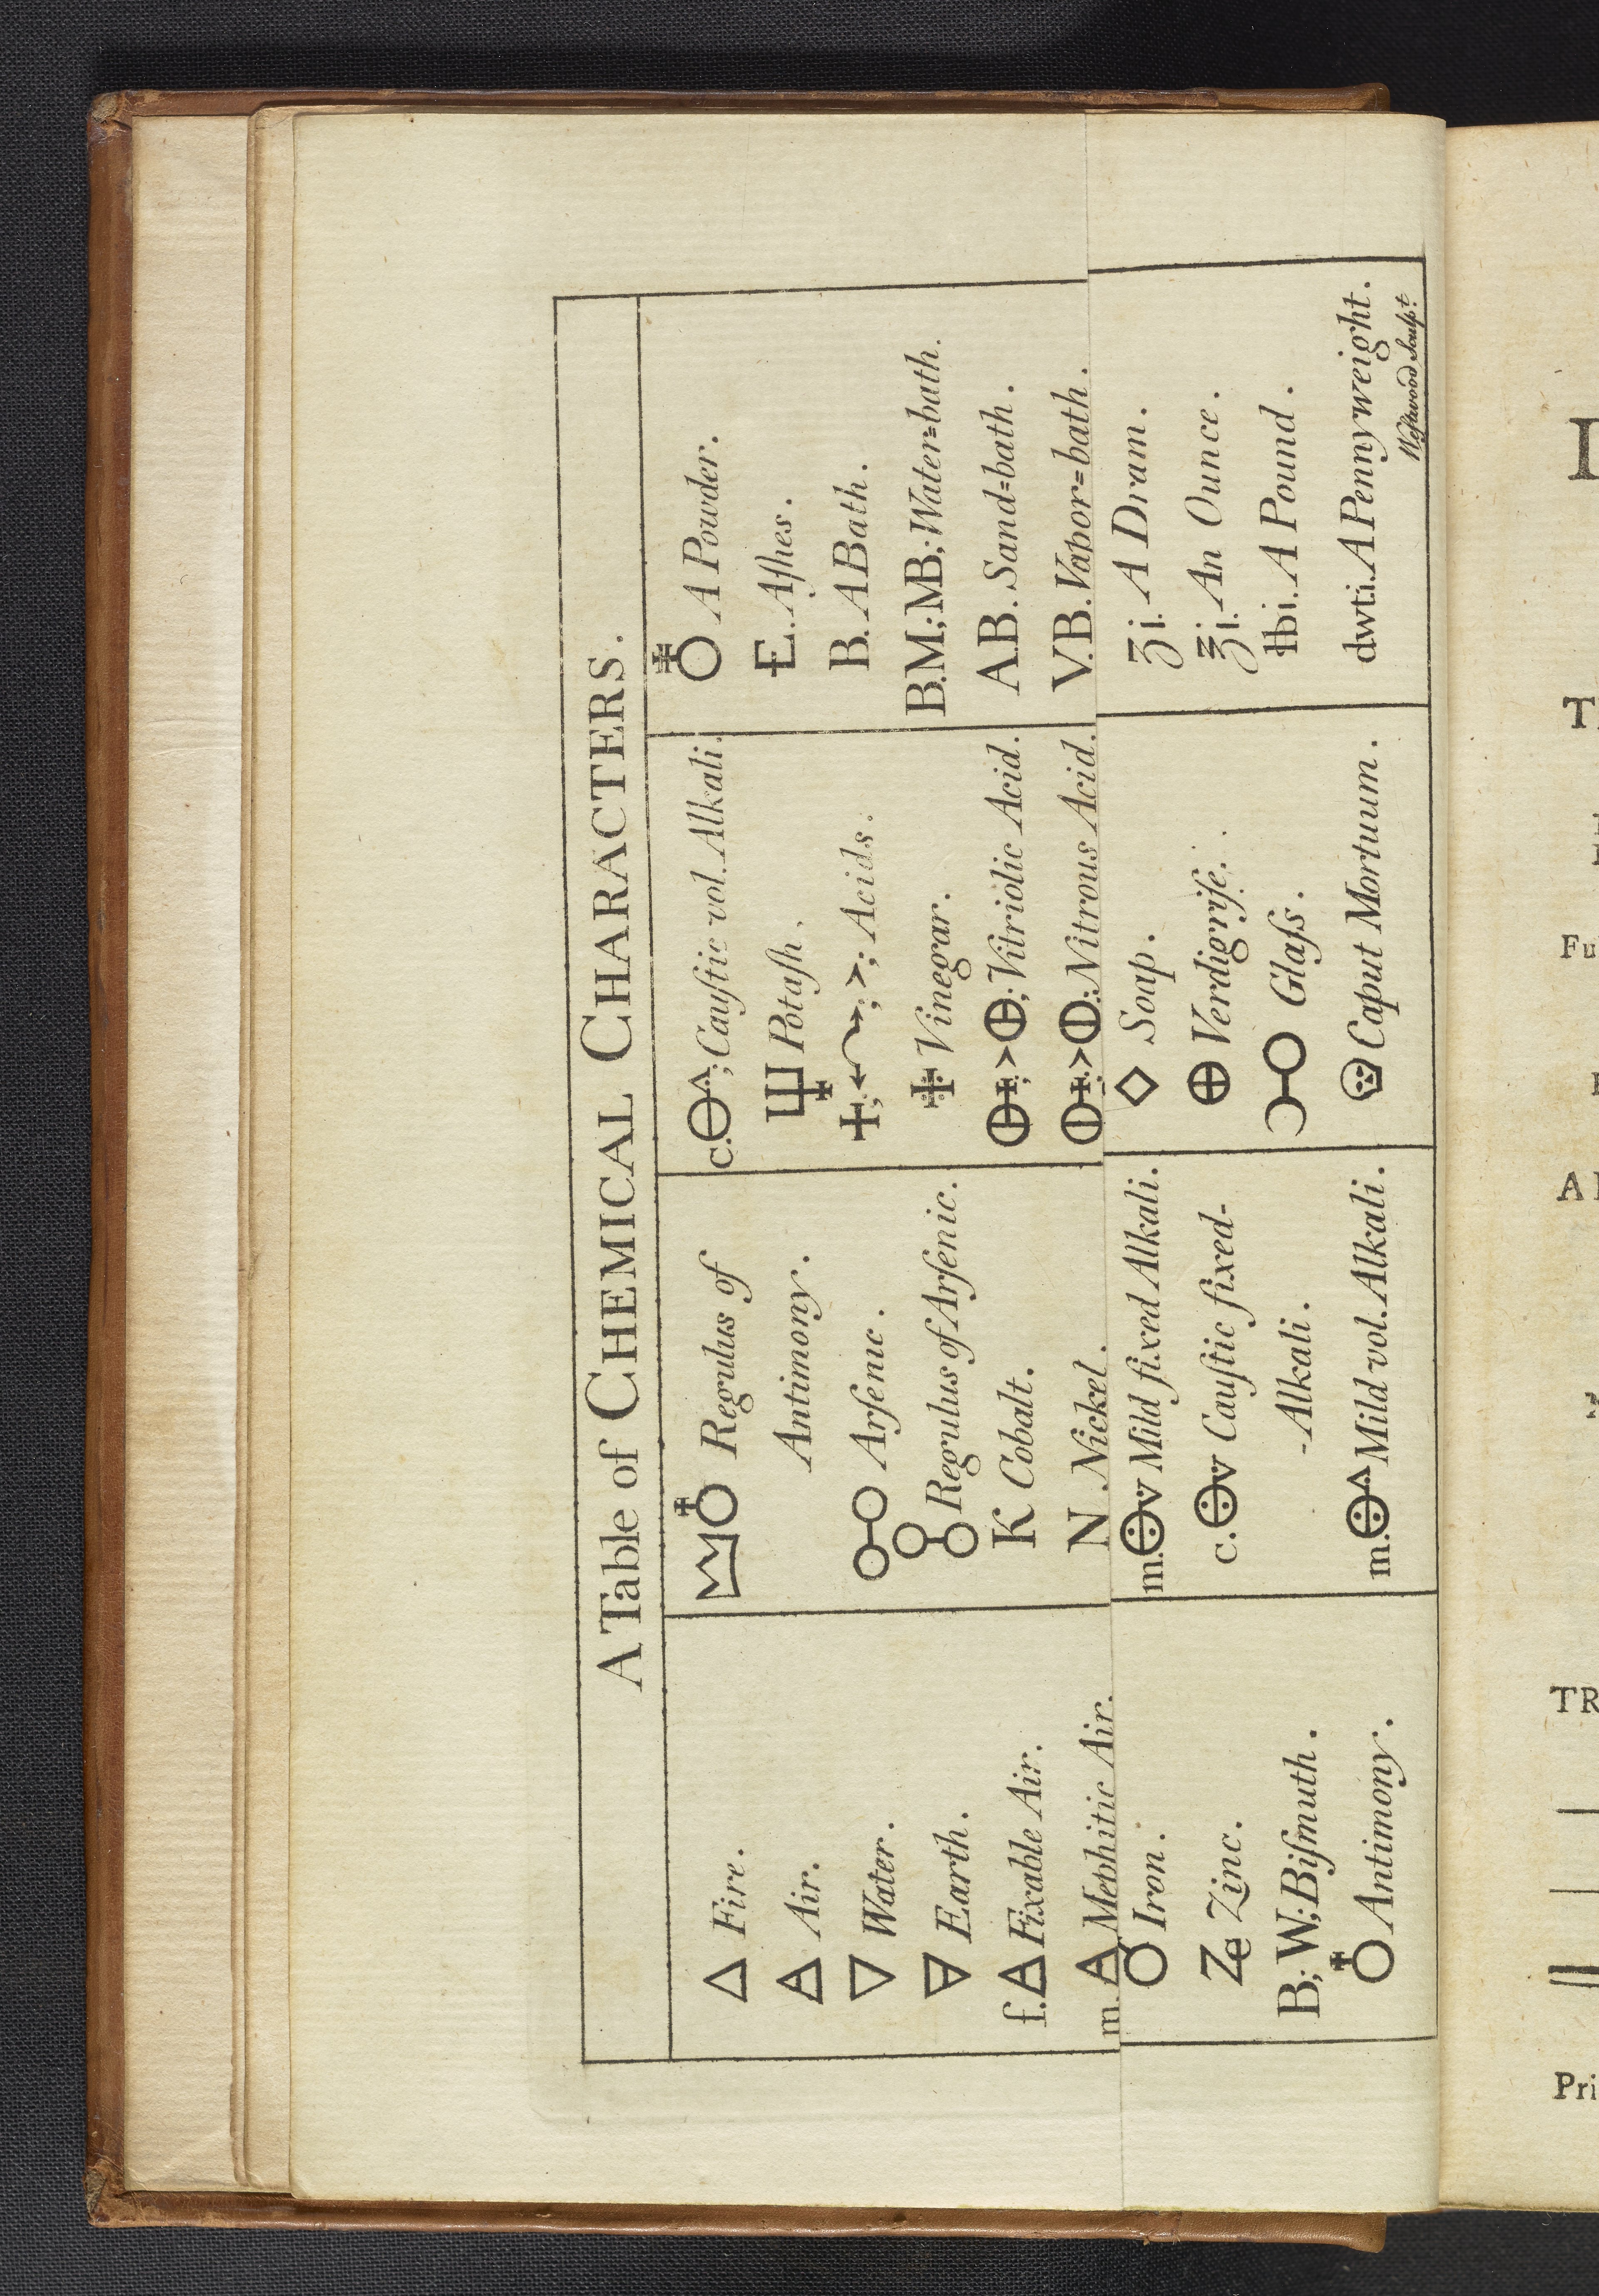 A Table of CHEMICAL CHARACTERS.
🜂 Fire.
🜁 Air.
🜄 Water.
🜃 Earth.
f.🜁 Fixable Air.
m.🜁 Mephitic Air.
Iron.
Zinc.
B; W; Biſmuth.
♁ Antimony.
Regulus of
Antimony.
Arſenic.
Regulus of Arſenic.
K Cobalt.
N Nickel.
m. Mild fixed Alkali.
c. Cauſtic fixed-
-Alkali.
m. Mild vol. Alkali.
c. ; Cauſtic vol. Alkali.
Potaſh.
Acids.
Vinegar.
Vitriolic Acid.
Nitrous Acid.
◇ Soap.
⊕ Verdigriſe.
Glaſs.
Caput Mortuum.
♁ A Powder.
E. Aſhes.
B. A Bath.
B.M; MB; Water=bath.
AB. Sand=bath.
V.B. Vapor=bath.
ʒi. A Dram.
℥i. An Ounce.
℔i. A Pound.
dwti. A Pennyweight.
Weſtwood Sculpt.
T
Fu
TR
Pri